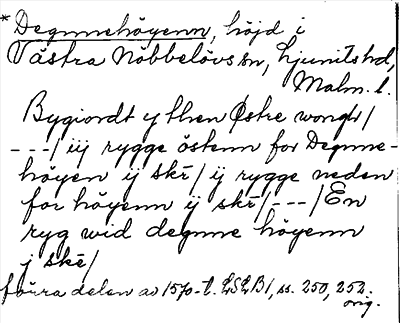 * Degnnehöyenn, höjd i
Västra Nöbbelövs sn, Ljunits hd,
Malm. l.
Bygiordt y then Østre wongh/
---/ iij rygge östenn for Degnne-
höyen ij skr/ ij rygge neden
for höyenn ij skr/---/ En
ryg wid degnne höyenn
j ske/
förra delen av 1570-t. LSLB1, ss. 250, 252.
orig.